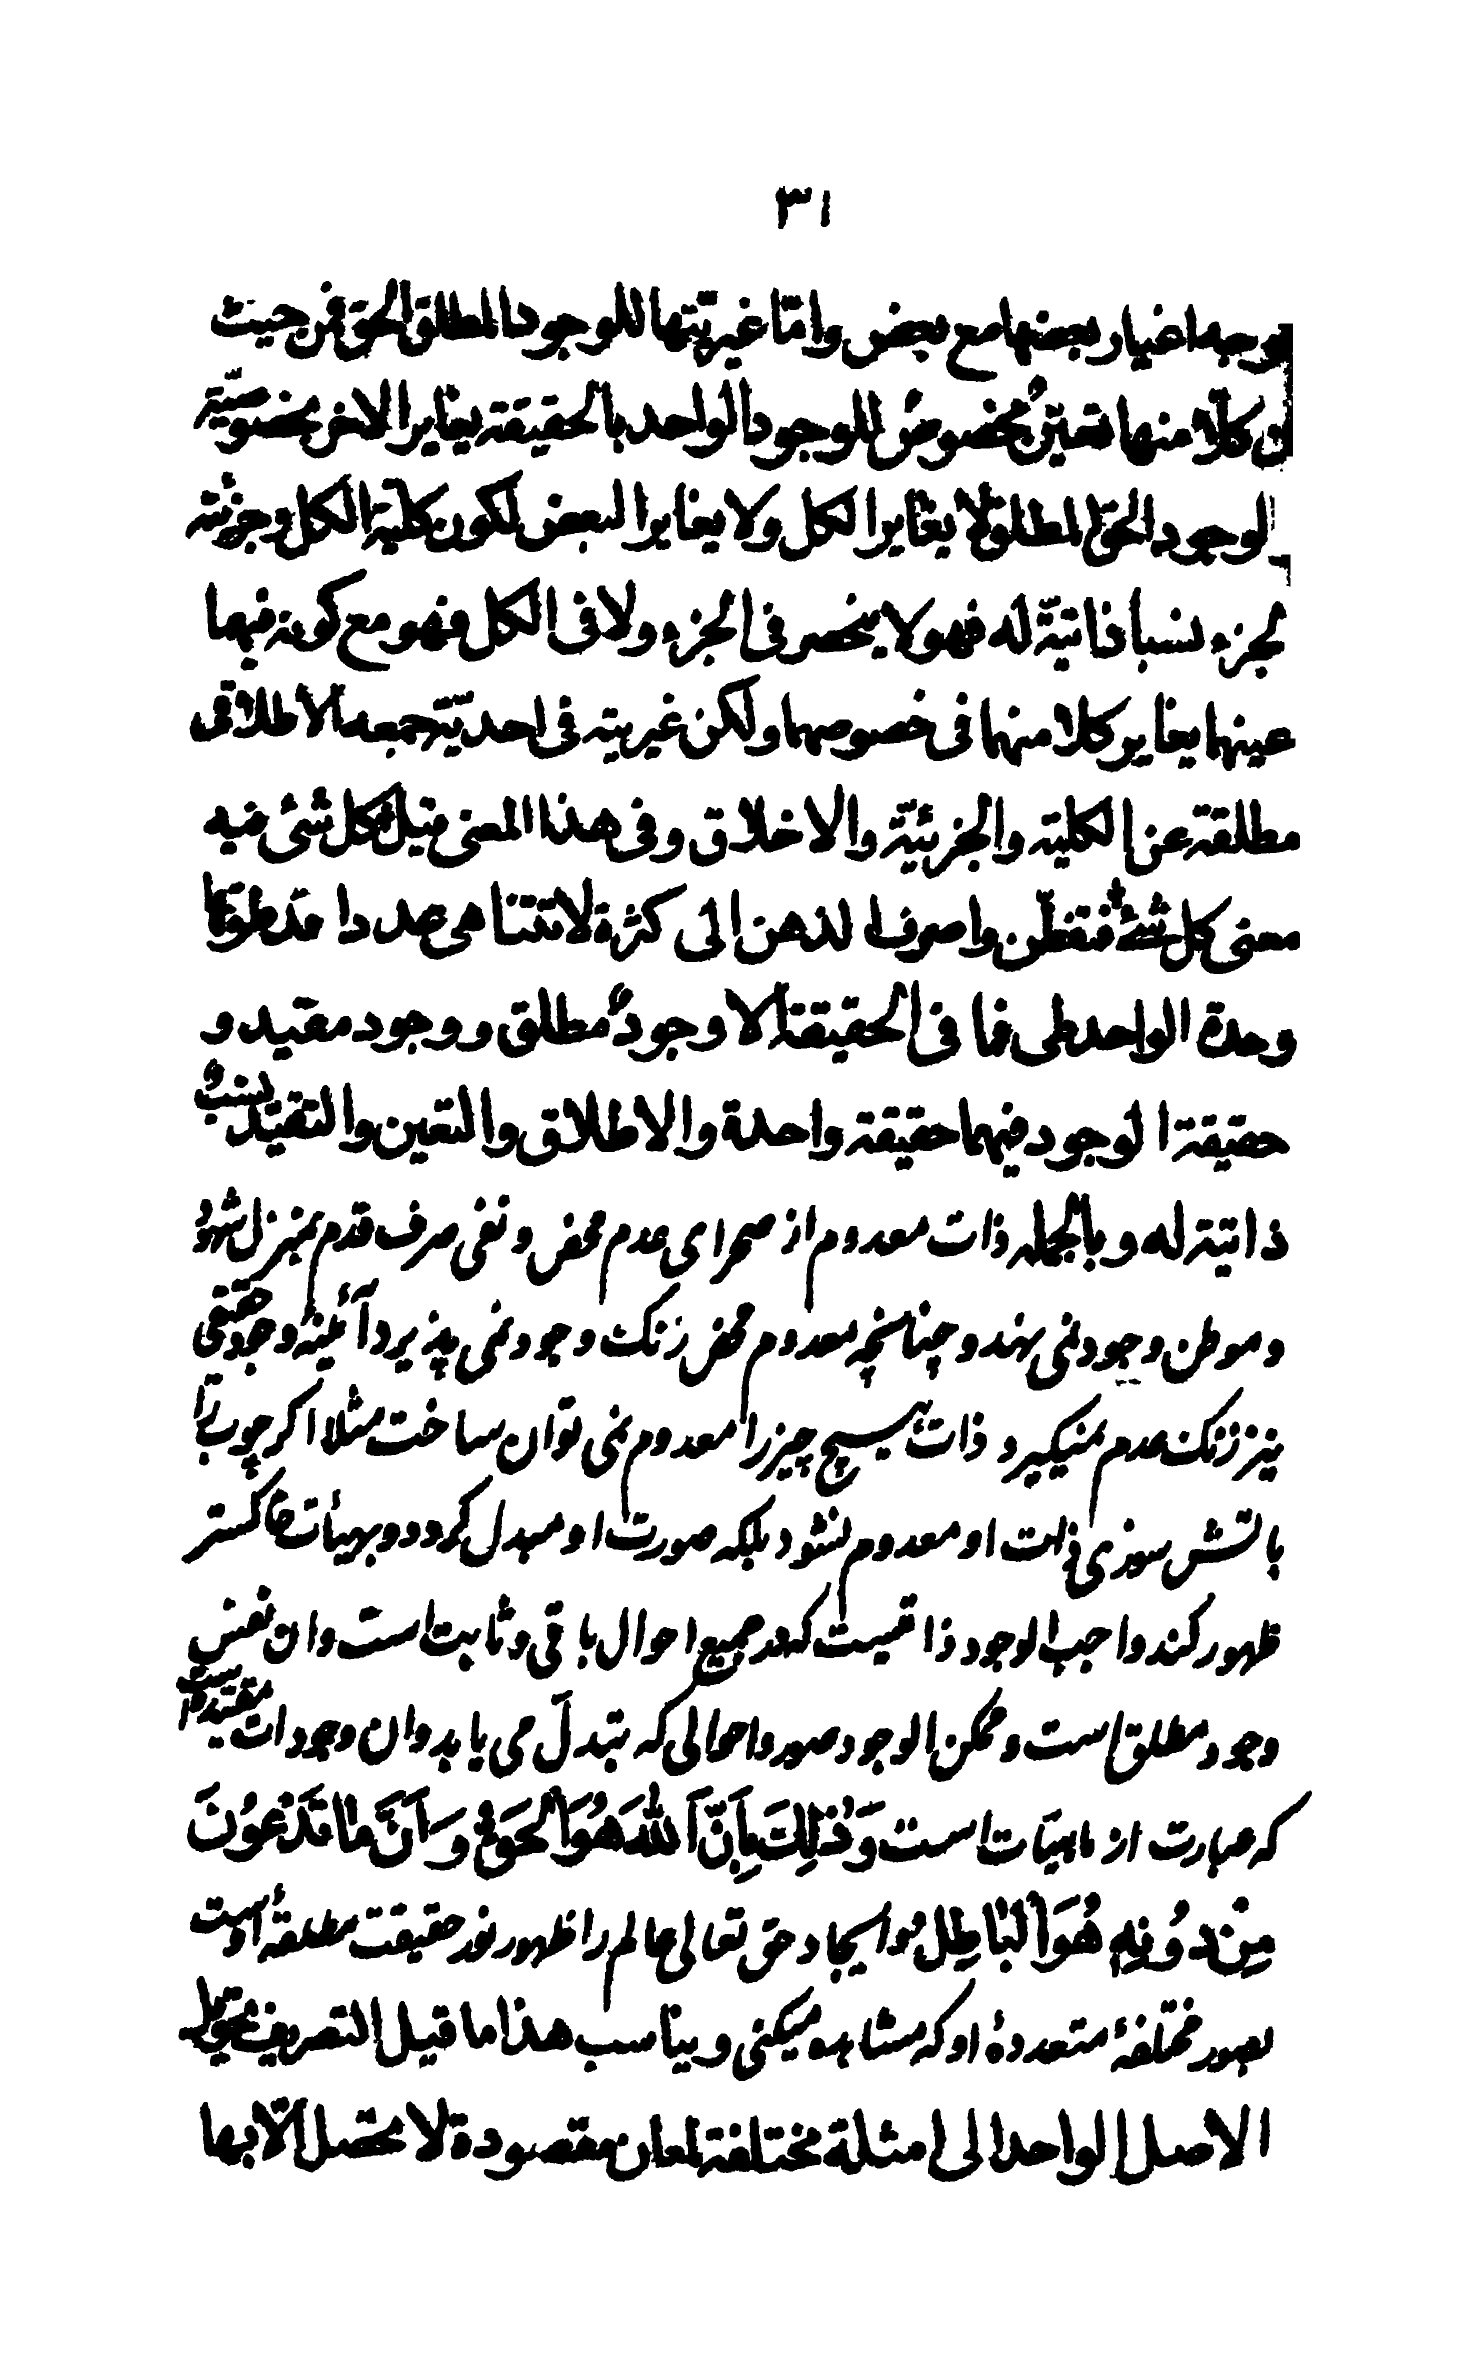 ٣١
بوجه اغيار بعضها مع بعض وامّا غيريّتها للوجود المطلق الحق فمن حيث
ان كلّا منها تعيّنٌ مخصوصٌ للوجود الواحد بالحقيقة يغاير الاخر بخصوصيّته
الوجود الحق المطلق لا يغاير الكل ولا يغاير البعض لكون كلية الكل وجزئية
الجزء نسبا ذاتيّة له فهو لا ينحصر فى الجزء ولا فى الكل فهو مع كونه فيهما
عينهما يغاير كلا منهما فى خصوصهما ولكن غيريته فى احديّة جمعه الاطلاقى
مطلقة عن الكلية والجزئيّة والاخلاق وفى هذا المعنى قيل كل شئ فيه
معنى كل شئ فتفطّن واصرف الذهن الى كثرة لا تتناهى عددا قد طوتها
وحدة الواحد طى فما فى الحقيقة الا وجودٌ مطلق ووجود مقيد و
حقيقة الوجود فيهما حقيقة واحدة والاطلاق والتعين والتقيّد نسبٌ
ذاتية له وبالجمله ذات معدوم از صحراى عدم محض ونفى صرف قدم بمنزل شهود
وموطن وجود نمى نهند وچنانچه معدوم محض زنگ وجود نمى پذيرد آئينهٔ وجود حقيقى
نيز زنگ عدم نميگيرد وذات هيچ چيز را معدوم نمى توان ساخت مثلا اگر چوب را
باتش سوزى ذات او معدوم نشود بلكه صورت او مبدل گردد وبهيأت خاكستر
ظهور كند واجب الوجود ذاتيست كه در جميع احوال باقى وثابت است وان نفس
وجود مطلق است وممكن الوجود صور واحوالى كه تبدل مى يابد وان وجودات مقيده است
كه عبارت از ماهيات است وَذٰلِكَ بِاَنَّ اللهَ هُوَ الْحَقُّ وَاَنَّ مَا تَدْعُوْنَ
مِنْ دُوْنِهِ هُوَ الْبَاطِلُ وايجاد حق تعالى عالم را ظهور نور حقيقت مطلقهٔ اوست
بصور مختلفهٔ متعددهٔ او كه مشاهده ميكنى ويناسب هذا ما قيل التصريف تحويل
الاصل الواحد الى امثلة مختلفة لمعان مقصودة لا تحصل الّا بها